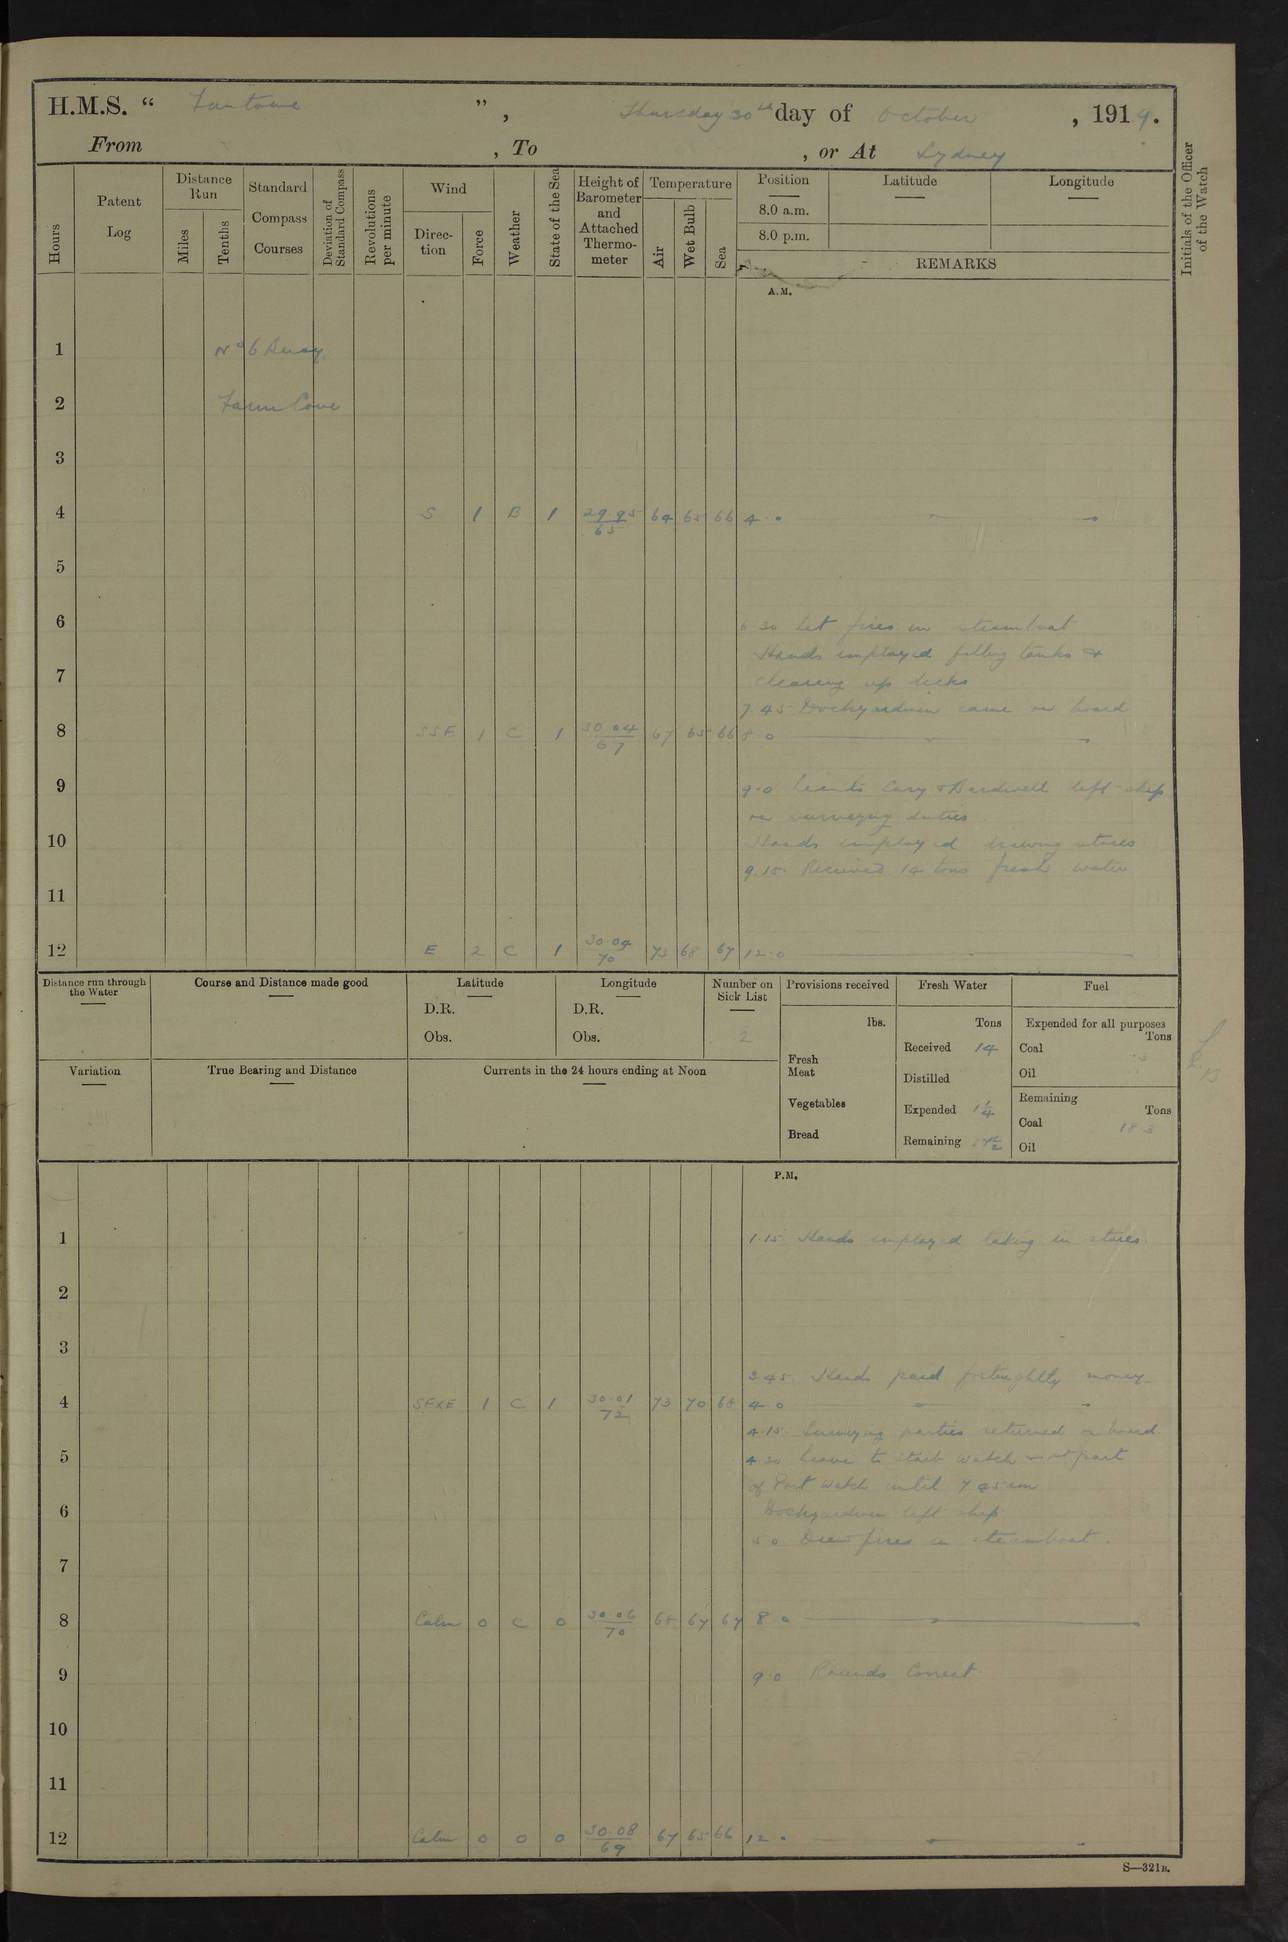 H.M.S. “ Fantome ”, Thursday 30th day of October, 1919.
From , To , or At Sydney
Hours
Patent Log
Distance Run
Miles
Tenths
Standard Compass Courses
Deviation of Standard Compass
Revolutions per minute
Wind
Direc-tion
Force
Weather
State of the Sea
Height of Barometer and Attached Thermo-meter
Temperature
Air
Wet Bulb
Sea
Position
8.0 a.m.
8.0 p.m.
Latitude
Longitude
REMARKS
Initials of the Officer of the Watch
A.M.
1 No 6 Buoy
2 Farm Cove
3
4 S 1 B 1 29.95 65 64 65 66 4.0
5
6 6.30 Lit fires in steamboat
Hands employed filling tanks &
7 clearing up decks
7.45 Dockyardmen came on board
8 SSE 1 C 1 30.04 67 67 65 66 8.0
9 9.0 Lieuts Cary & Bardwell left ship
on surveying duties
10 Hands employed drawing stores
9.15. Received 14 tons fresh water
11
12 E 2 C 1 30.04 70 73 68 67 12.0
Distance run through the Water
Course and Distance made good
Latitude
D.R.
Obs.
Longitude
D.R.
Obs.
Number on Sick List
2
Provisions received
lbs.
Fresh Meat
Vegetables
Bread
Fresh Water
Tons
Received 14
Distilled
Expended
Remaining
Fuel
Expended for all purposes
Tons
Coal 3
Oil
Remaining
Tons
Coal 183
Oil
Variation
True Bearing and Distance
Currents in the 24 hours ending at Noon
P.M.
1 1.15. Hands employed taking in stores
2
3
3.45. Hands paid fortnightly money
4 SExE 1 C 1 30.01 72 73 70 68 4.0
4.15. Surveying parties returned on board
5 4.30 Leave to Starb watch & 1st part
of Port watch until 7.45 am
6 Dockyardmen left ship
5.0 Drew fires in steamboat.
7
8 Calm 0 C 0 30.06 70 68 67 67 8.0
9 9.0 Rounds Correct
10
11
12 Calm 0 0 0 30.08 69 67 65 66 12.0
S—321B.